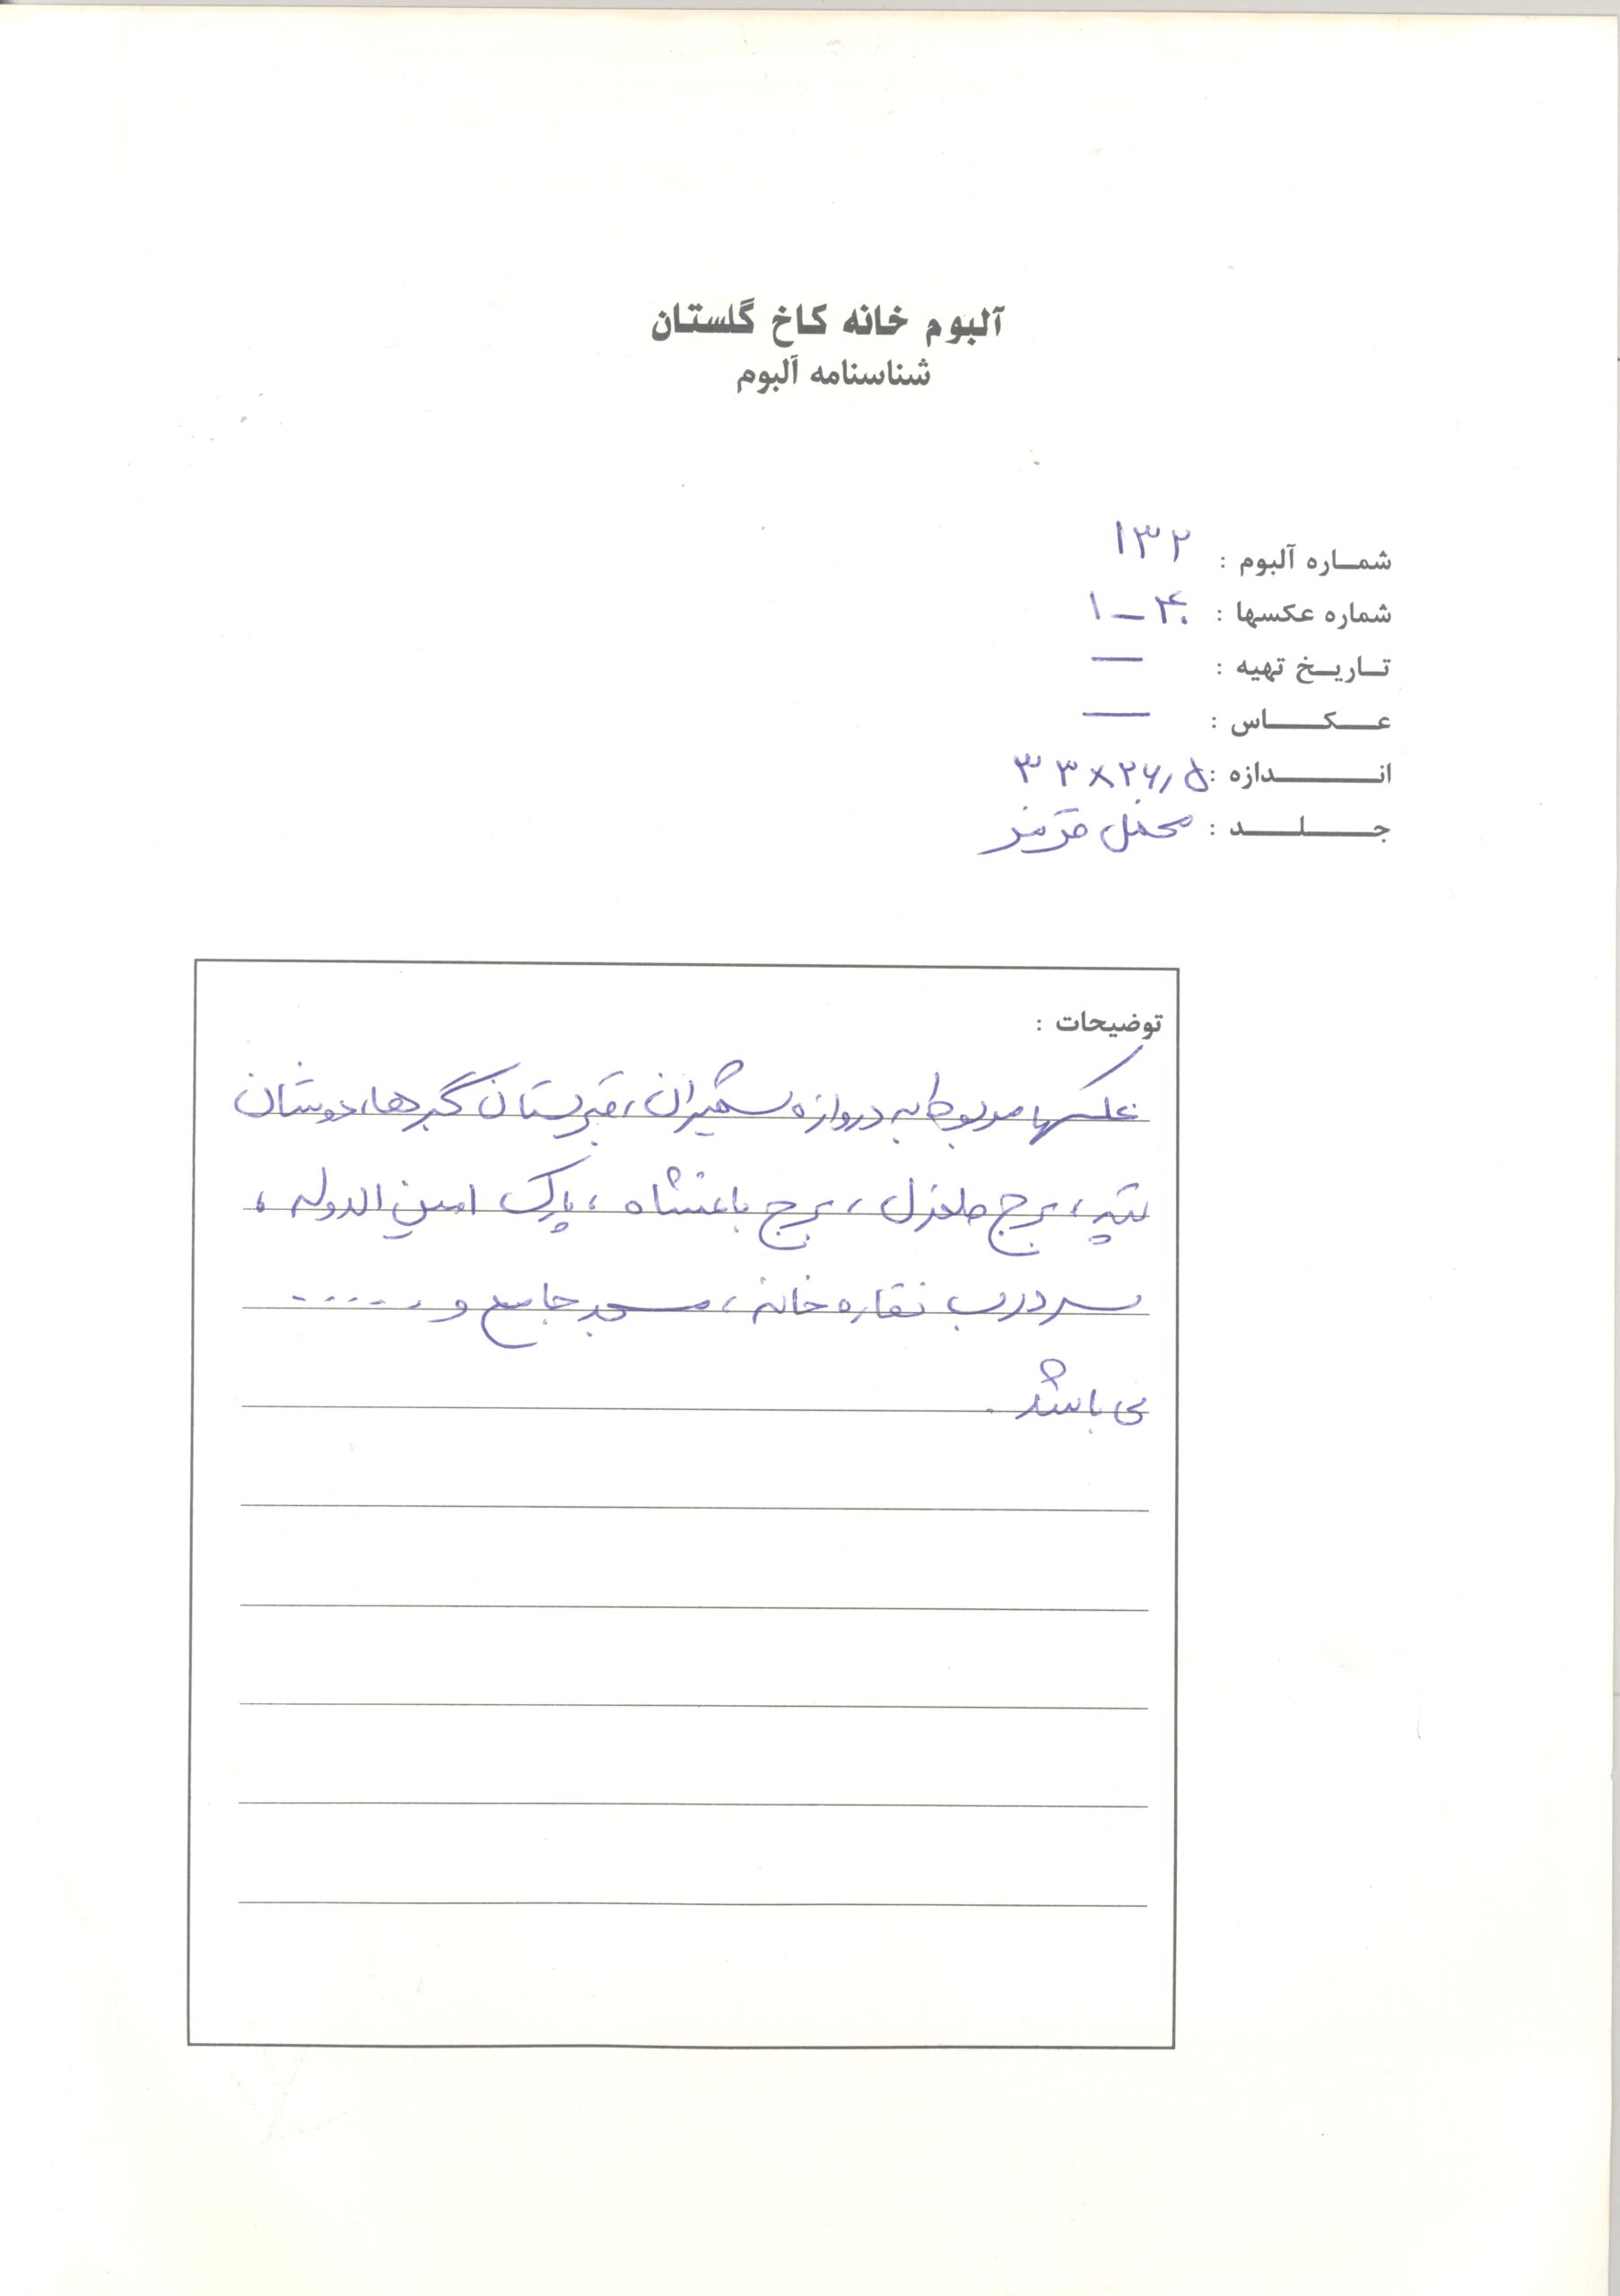 آلبوم خانه کاخ گلستان
شناسنامه آلبوم
شماره آلبوم : ۱۳۲
شماره عکسها : ۴۰ – ۱
تاریخ تهیه : —
عکاس : —
اندازه : ۳۳×۲۶٫۵
جلد : مخمل قرمز
توضیحات :
عکسها مربوط به دروازه شمیران، قبرستان گبرها، دوشان
تپه، برج طغرل، برج باغشاه، پارک امین الدوله،
سر درب نقاره خانه، مسجد جامع و ......
می باشد.